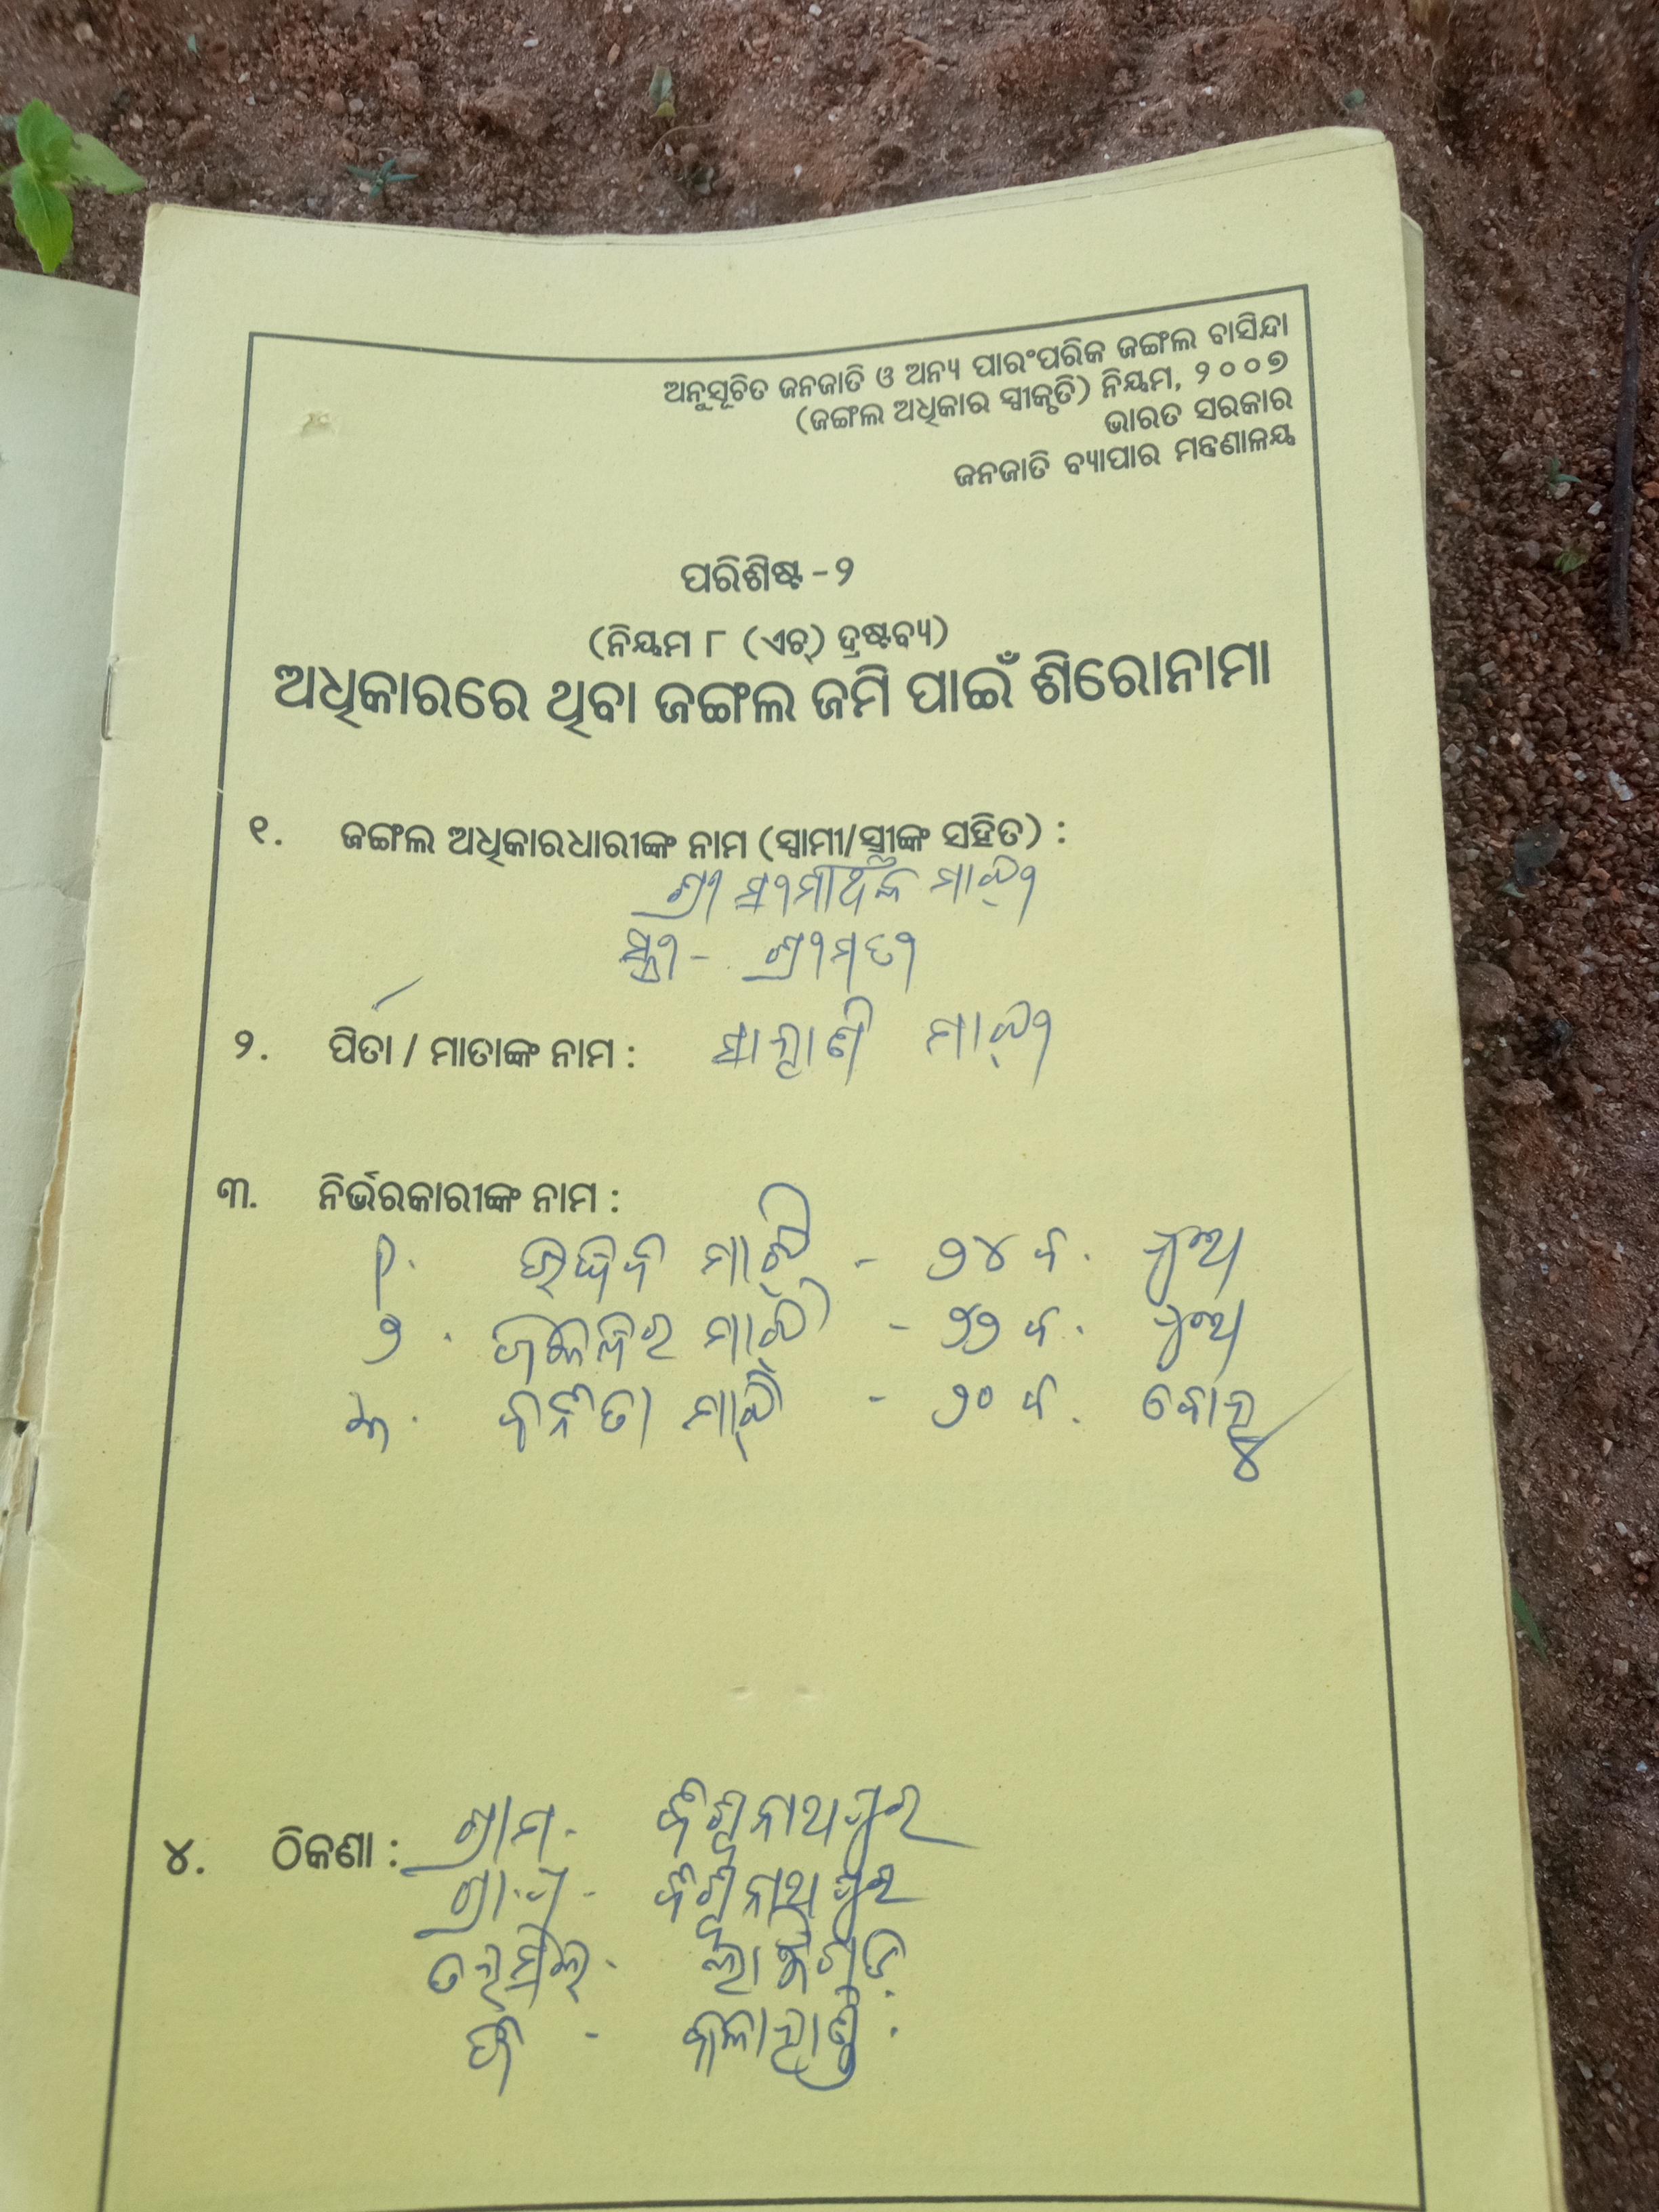 ଅନୁସୂଚିତ ଜନଜାତି ଓ ଅନ୍ୟ ପାରଂପରିକ ଜଙ୍ଗଲ ବାସିନ୍ଦା
(ଜଙ୍ଗଲ ଅଧିକାର ସ୍ୱୀକୃତି) ନିୟମ, ୨୦୦୭
ଭାରତ ସରକାର
ଜନଜାତି ବ୍ୟାପାର ମନ୍ତ୍ରଣାଳୟ
ପରିଶିଷ୍ଟ - ୨
(ନିୟମ ୮ (ଏଚ୍) ଦ୍ରଷ୍ଟବ୍ୟ)
ଅଧିକାରରେ ଥିବା ଜଙ୍ଗଲ ଜମି ପାଇଁ ଶିରୋନାମା
୧. ଜଙ୍ଗଲ ଅଧିକାରଧାରୀଙ୍କ ନାମ (ସ୍ୱାମୀ/ସ୍ତ୍ରୀଙ୍କ ସହିତ) :
ଶ୍ରୀ ମାଝୀ
ସ୍ତ୍ରୀ - ଶ୍ରୀମତୀ
୨. ପିତା / ମାତାଙ୍କ ନାମ : ମାଝୀ
୩. ନିର୍ଭରକାରୀଙ୍କ ନାମ :
୧. ମାଝି - ୨୪ ବ. ପୁଅ
୨. ମାଝି - ୨୨ ବ. ପୁଅ
୩. ମାଝି - ୨୦ ବ. ବୋହୁ
୪. ଠିକଣା : ଗ୍ରାମ - ବିଶ୍ୱନାଥପୁର
ଗ୍ରା.ପ - ବିଶ୍ୱନାଥପୁର
ତହସିଲ - ଲାଞ୍ଜିଗଡ଼
ଜି - କଳାହାଣ୍ଡି.